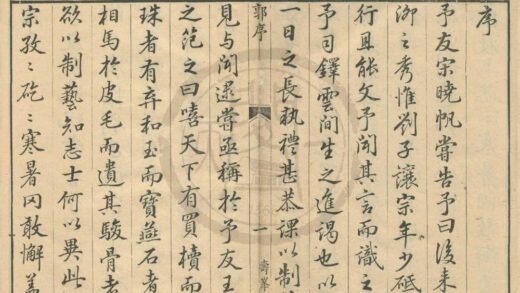 序
予友宗曉帆嘗告予曰後来
泖之秀惟劉子讓宗年少砥
行且能文予聞其言而識之
予司鐸雲間生之進謁也以
一日之長執禮甚恭課以制
郭序
一
壽峯
見与聞嘗亟稱於予友王
之范之曰嘻天下有買櫝而
珠者有弃和玉而寶燕石者
相馬於皮毛而遺其駿骨者
欲以制藝知志士何以異此
宗孜〻矻〻寒暑罔敢懈蓋